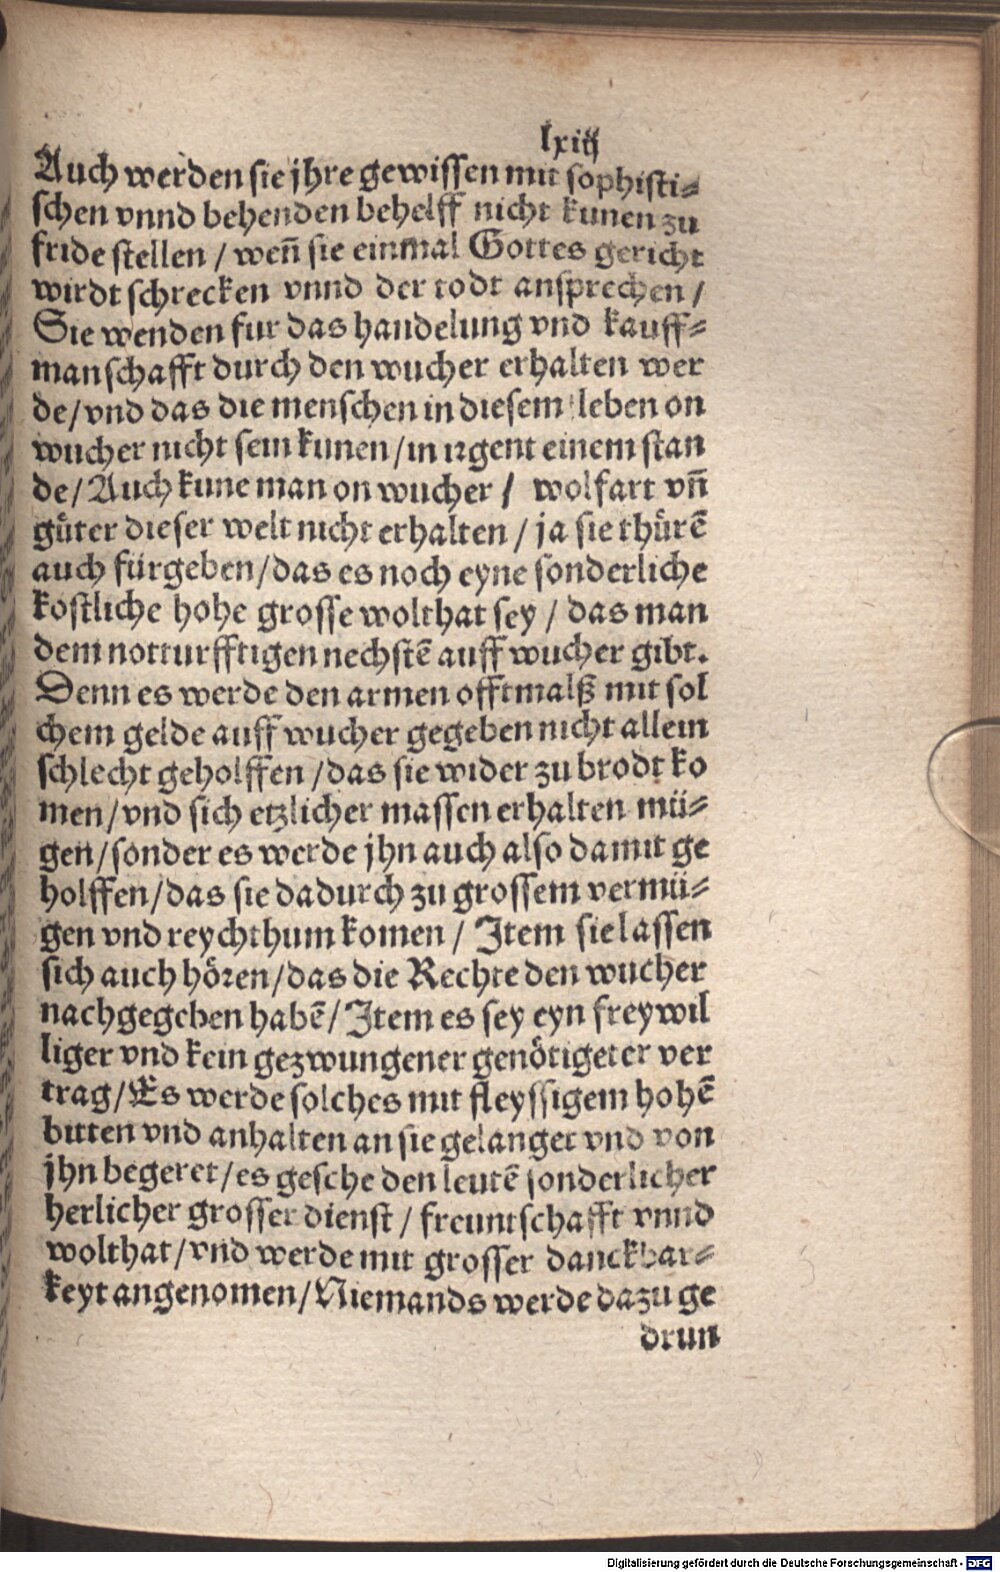 lxiij
Auch werden sie jhre gewissen mit sophisti-
schen vnnd behenden behelff nicht kunen zu
fride stellen / wen̄ sie einmal Gottes gericht
wirdt schrecken vnnd der todt ansprechen /
Sie wenden fur das handelung vnd kauff-
manschafft durch den wucher erhalten wer
de / vnd das die menschen in diesem leben on
wucher nicht sein kunen / in irgent einem stan
de / Auch kune man on wucher / wolfart vn̄
gůter dieser welt nicht erhalten / ja sie thürē
auch fürgeben / das es noch eyne sonderliche
kostliche hohe grosse wolthat sey / das man
dem notturfftigen nechstē auff wucher gibt.
Denn es werde den armen offtmalß mit sol
chem gelde auff wucher gegeben nicht allein
schlecht geholffen / das sie wider zu brodt ko
men / vnd sich etzlicher massen erhalten mü-
gen / sonder es werde jhn auch also damit ge
holffen / das sie dadurch zu grossem vermü-
gen vnd reychthum komen / Item sie lassen
sich auch hören / das die Rechte den wucher
nachgegeben habē / Item es sey eyn freywil
liger vnd kein gezwungener genötigeter ver
trag / Es werde solches mit fleyssigem hohē
bitten vnd anhalten an sie gelanget vnd von
jhn begeret / es gesche den leutē sonderlicher
herlicher grosser dienst / freuntschafft vnnd
wolthat / vnd werde mit grosser danckbar-
keyt angenomen / Niemands werde dazu ge
drun
Digitalisierung gefördert durch die Deutsche Forschungsgemeinschaft - DFG